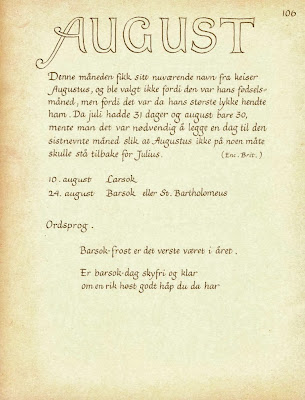 106
AUGUST
Denne måneden fikk sitt nuværende navn fra keiser
Augustus, og ble valgt ikke fordi den var hans fødsels-
måned, men fordi det var da hans største lykke hendte
ham. Da juli hadde 31 dager og august bare 30,
mente man det var nødvendig å legge en dag til den
sistnevnte måned slik at Augustus ikke på noen måte
skulle stå tilbake for Julius. (Enc. Brit.)
10. august Larsok
24. august Barsok eller St. Bartholomeus
Ordsprog.
Barsok-frost er det verste været i året.
Er barsok-dag skyfri og klar
om en rik høst godt håp du da har